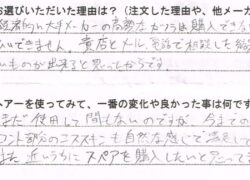 お選びいただいた理由は？（注文した理由や、他メーカ
経済的に大手メーカーの高額なカツラは購入できな
できません。貴店とメール、電話で相談した結
ものが出来ると思ったからです。
ヘアーを使ってみて、一番の変化や良かった事は何です
まだ使用して間もないのですが、今までの
フロント部分のスキンも自然な感じで満足して
また近いうちにスペアを購入したいと思って